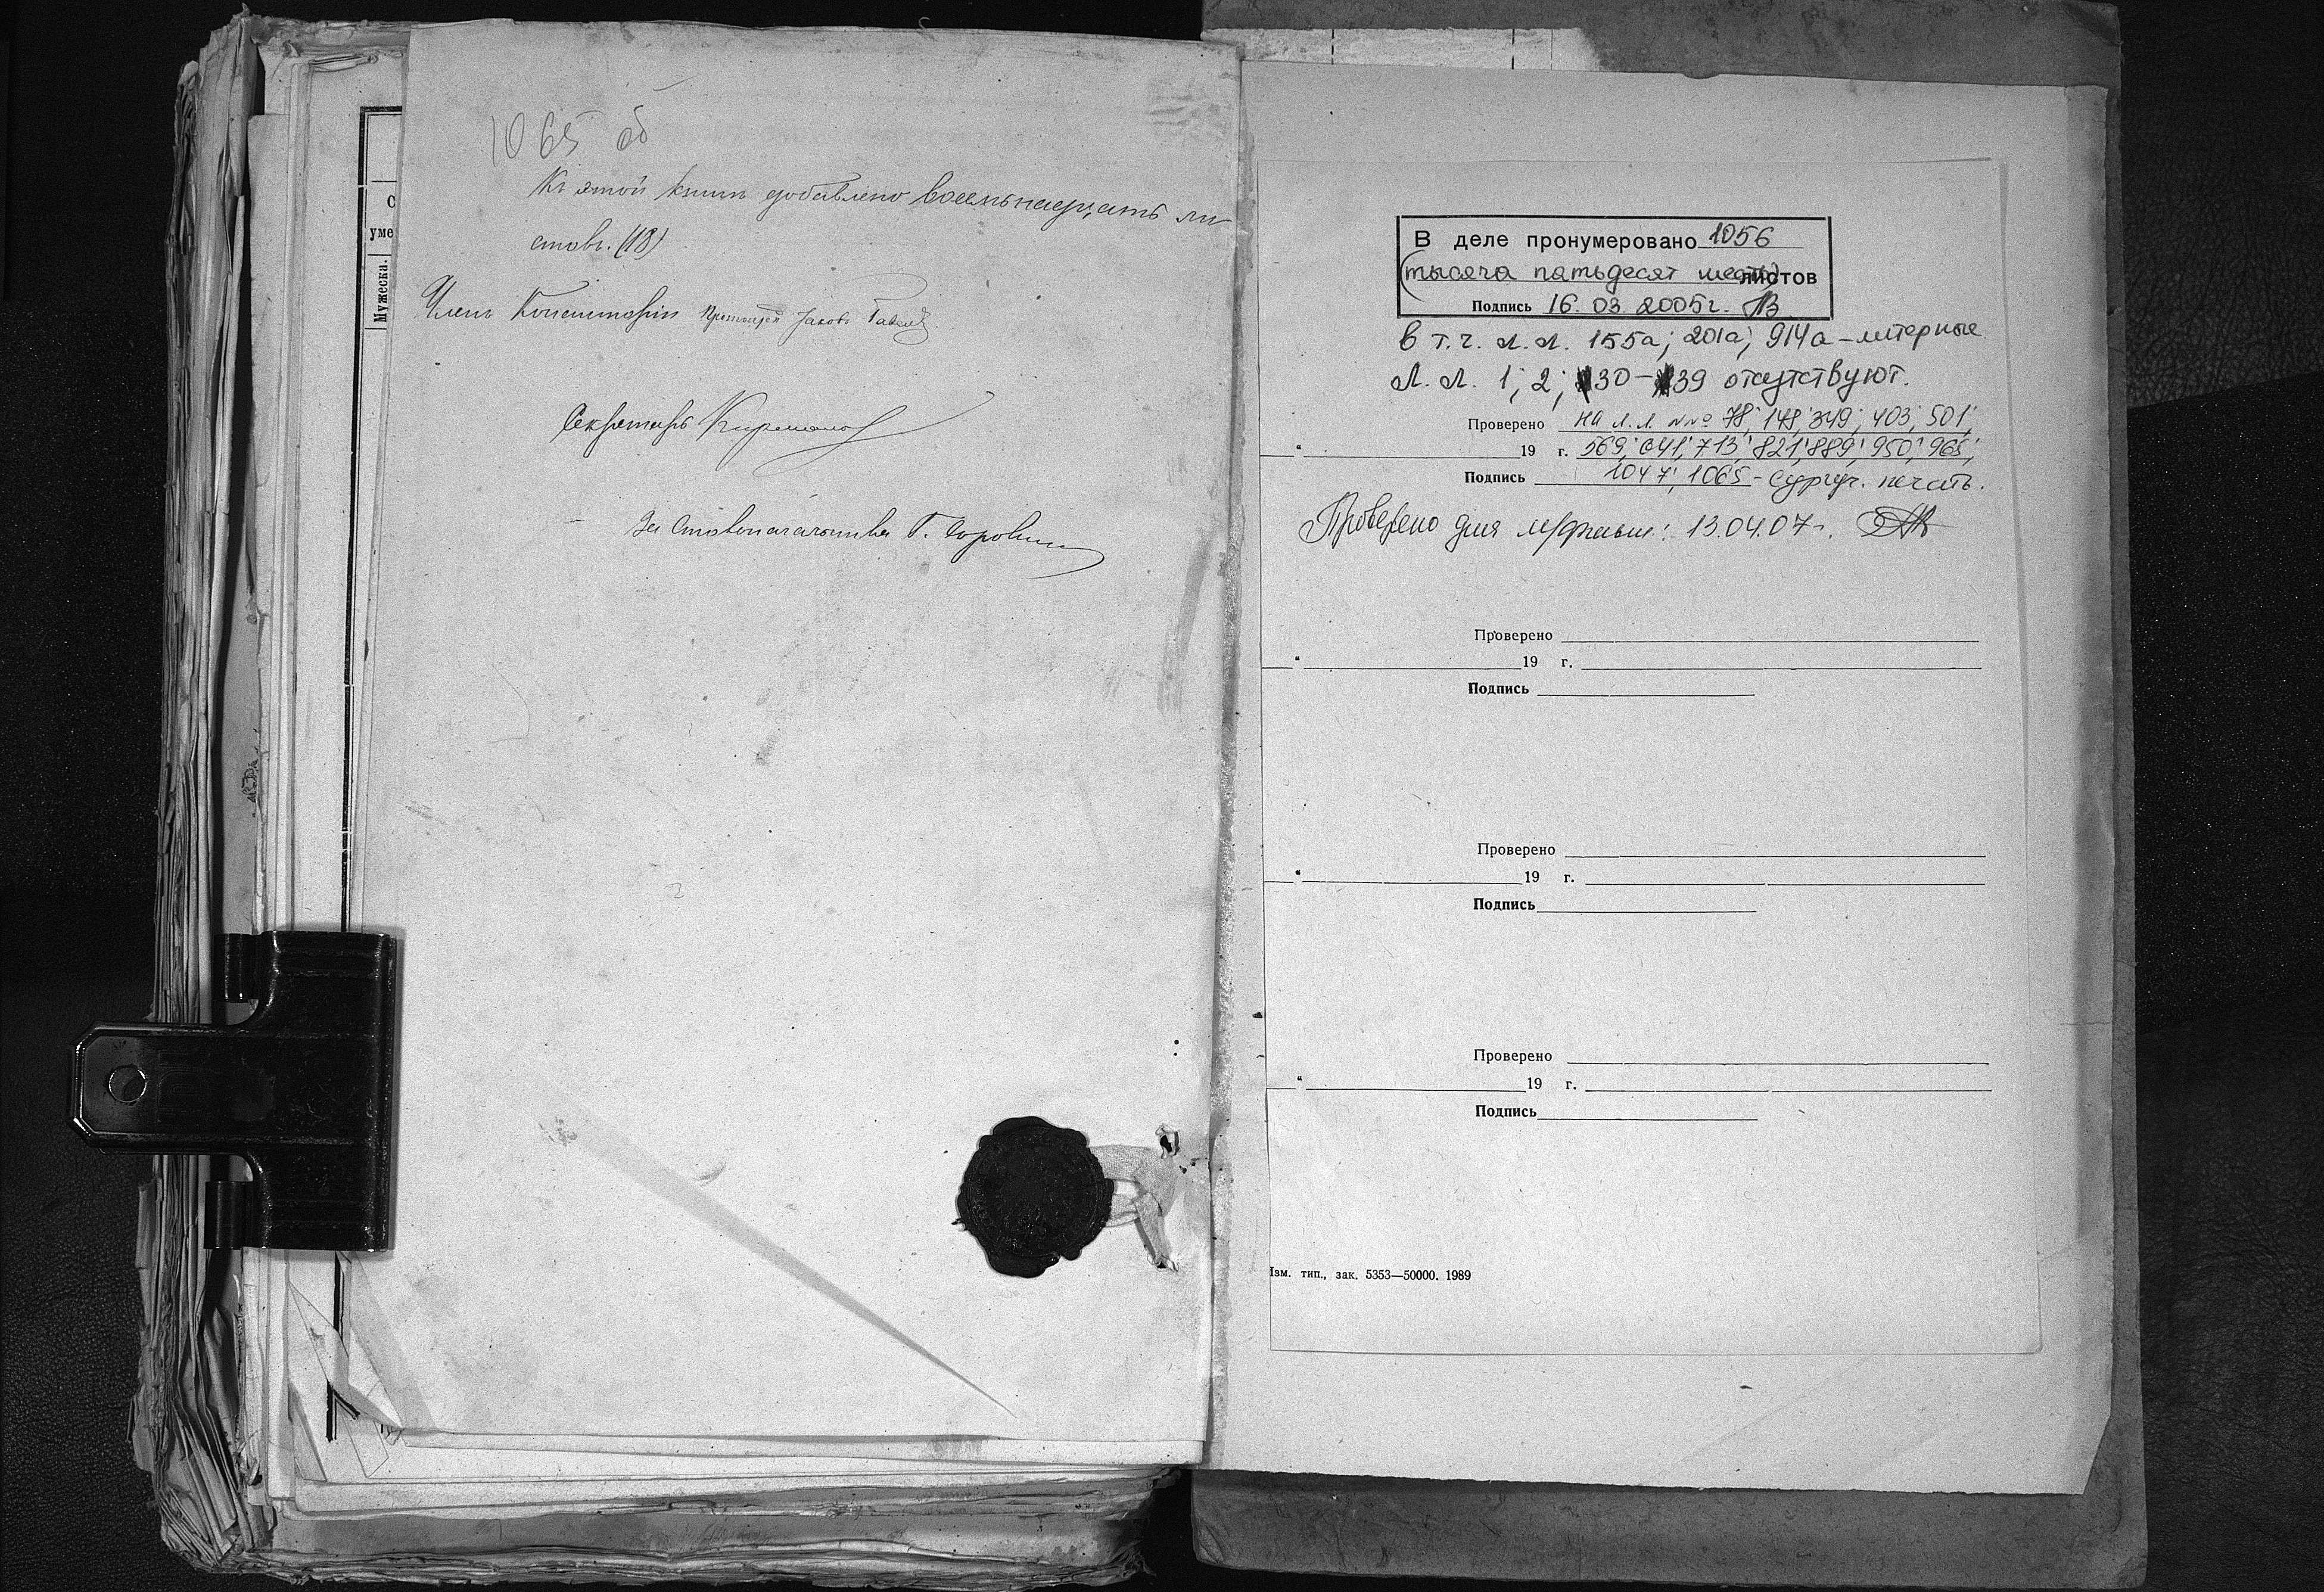 С
уме
Мужеска.
1065 об
Къ этой книгѣ добавлено восемьнадцать ли
стовъ. (18)
Членъ Консисторіи Протоіерей Іаковъ
Секретарь
За Столоначальника Г.
В деле пронумеровано 1056
(тысяча пятьдесят шесть) листов
Подпись 16. 03. 2005г.
в т.ч. л.л. 155а; 201а; 914а – литерные
Л. Л. 1; 2; 30 – 39 отсутствуют.
Проверено на л.л. №№ 78; 148; 349; 403; 501;
“ 19 г. 569; 641; 713; 821; 889; 950; 965;
Подпись 1047; 1065 – сургуч. печать.
Проверено для м/фильм.: 13.04.07г.
Проверено
“ 19 г.
Подпись
Проверено
“ 19 г.
Подпись
Проверено
“ 19 г.
Подпись
Изм. тип., зак. 5353—50000. 1989